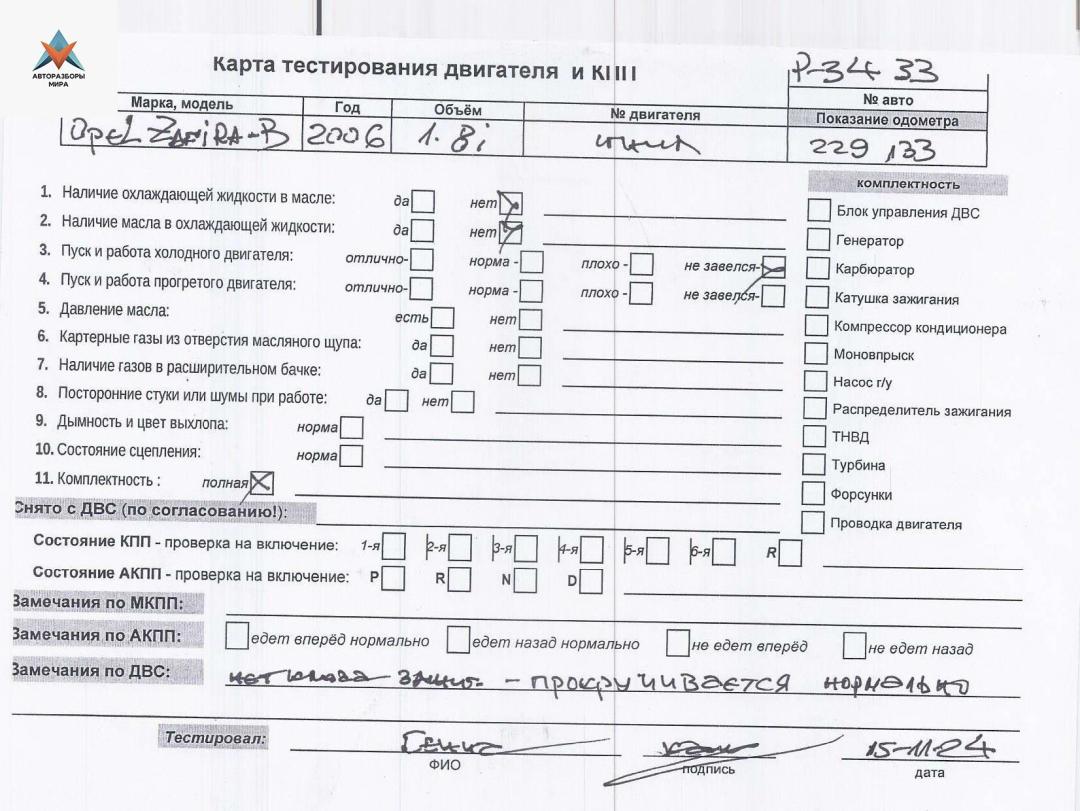 АВТОРАЗБОРЫ
МИРА
Карта тестирования двигателя и КПП
Р-34 33
№ авто
Марка, модель Год Объём № двигателя Показание одометра
Opel ZAFIRA-B 2006 1.8i 229,133
комплектность
1. Наличие охлаждающей жидкости в масле: да нет
2. Наличие масла в охлаждающей жидкости: да нет
3. Пуск и работа холодного двигателя: отлично- норма - плохо - не завелся-
4. Пуск и работа прогретого двигателя: отлично- норма - плохо - не завелся-
5. Давление масла: есть нет
6. Картерные газы из отверстия масляного щупа: да нет
7. Наличие газов в расширительном бачке: да нет
8. Посторонние стуки или шумы при работе: да нет
9. Дымность и цвет выхлопа: норма
10. Состояние сцепления: норма
11. Комплектность : полная
Блок управления ДВС
Генератор
Карбюратор
Катушка зажигания
Компрессор кондиционера
Моновпрыск
Насос г/у
Распределитель зажигания
ТНВД
Турбина
Форсунки
Проводка двигателя
Снято с ДВС (по согласованию!):
Состояние КПП - проверка на включение: 1-я 2-я 3-я 4-я 5-я 6-я R
Состояние АКПП - проверка на включение: P R N D
Замечания по МКПП:
Замечания по АКПП: едет вперёд нормально едет назад нормально не едет вперёд не едет назад
Замечания по ДВС: нет ключа зажиг. - прокручивается нормально
Тестировал: 15-11-24
ФИО подпись дата